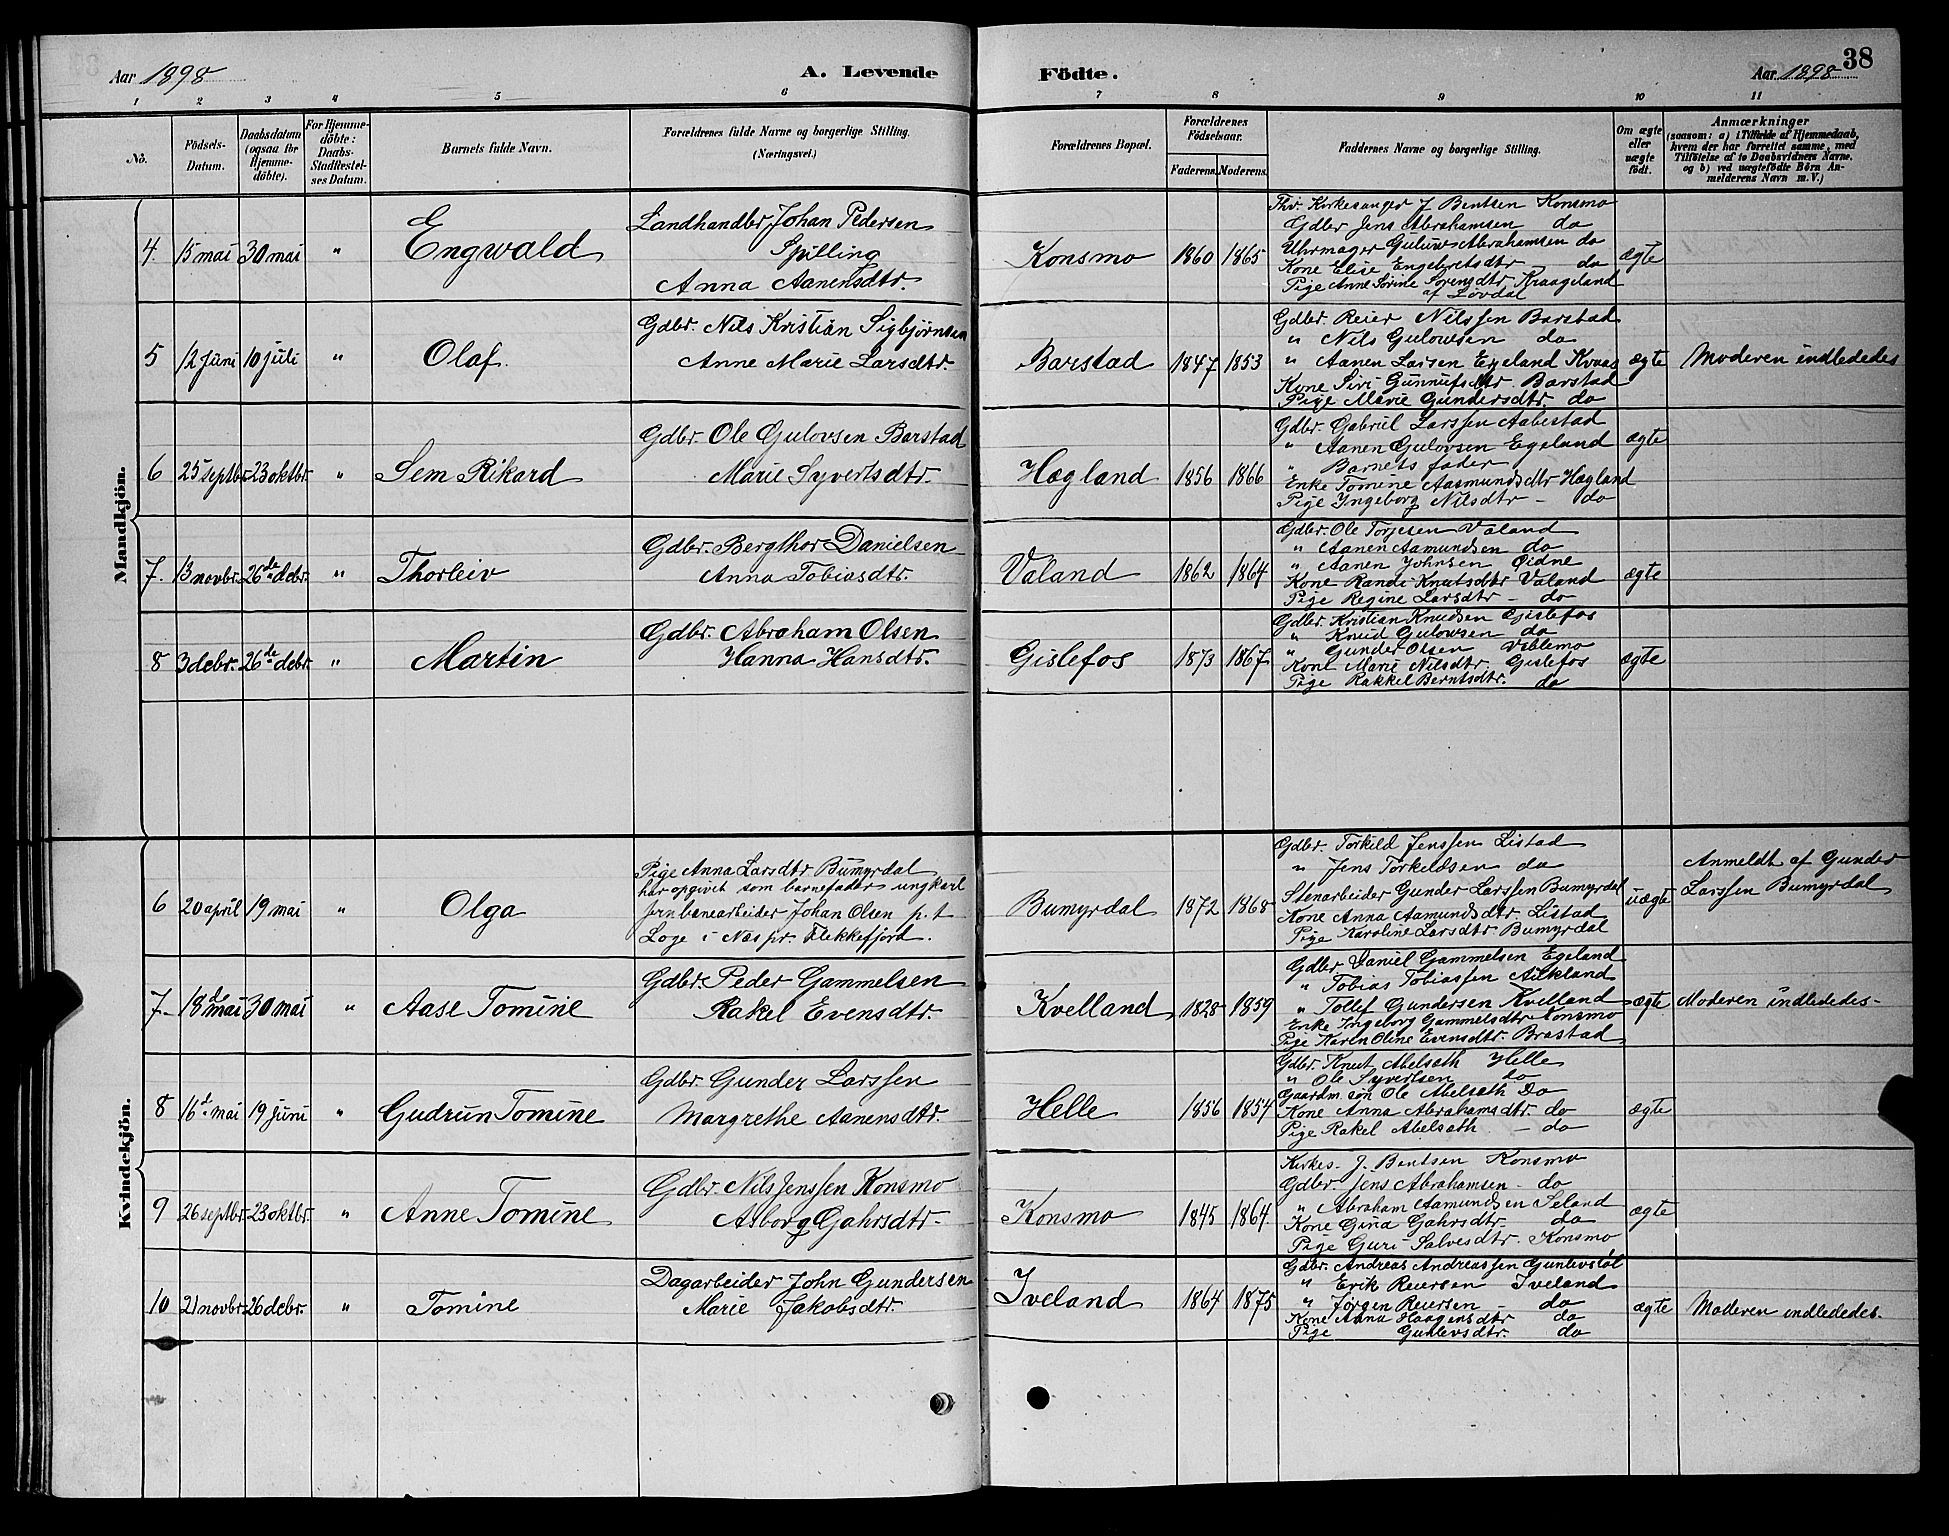 Aar 1898
A. Levende
Födte.
Aar 1898
38
1 2 3 4 5 6 7 8 9 10 11
No.
Födsels-
Datum.
Daabsdatum
(ogsaa for
Hjemme-
döbte).
For Hjemme-
döbte:
Daabs-
Stadfæstel-
ses Datum.
Barnets fulde Navn.
Forældrenes fulde Navne og borgerlige Stilling.
(Næringsvei.)
Forældrenes Bopæl.
Forældrenes
Födselsaar.
Faderens. Moderens.
Faddernes Navne og borgerlige Stilling.
Om ægte
eller
uægte
födt.
Anmærkninger
(saasom: a) i Tilfælde af Hjemmedaab,
hvem der har forrettet samme, med
Tilföielse af to Daabsvidners Navne,
og b) ved uægtefödte Börn An-
melderens Navn m. V.)
Mandkjön.
4. 15 mai 30 mai " Engwald
Landhandler Johan Pedersen
Spilling
Anna Aanensdtr.
Konsmo 1860 1865
Kirkesanger J Bentsen Konsmo
Gdbr Jens Abrahamsen do
Uhrmager Guluv Abrahamsen do
Kone Elise Engebretsdtr - do
Pige Anne Sörine Sörensdtr Kraageland
af Lövdal
ægte
5 12 juni 10 juli " Olaf.
Gdbr. Nils Kristian Sigbjörnsen
Anne Marie Larsdtr.
Barstad 1847 1853
Gdbr. Reier Nilssen Barstad
" Nils Gulowsen do
" Aanen Larsen Egeland Kvaas
Kone Siri Gunnufsdtr. Barstad
Pige Marie Gundersdtr. do
ægte
Moderen indlededes
6 25 septbr. 23 oktbr. " Sem Rikard
Gdbr. Ole Gulovsen Barstad
Marie Syvertsdtr.
Hægland 1856 1866
Gdbr. Gabriel Larssen Aabestad
" Aanen Gulovsen Egeland
" Barnets fader
Enke Tomine Aasmundsdtr Hægland
Pige Ingeborg Nilsdtr - do
ægte
7. 13 novbr. 26de debr. " Thorleiv
Gdbr. Bergthor Danielsen
Anna Tobiasdtr.
Valand 1862 1864
Gdbr. Ole Torjesen Valand
" Aanen Aamundsen do
" Aanen Johnsen Öidne
Kone Randi Knutsdtr Valand
Pige Regine Larsdtr - do
ægte
8 3 debr. 26de debr. " Martin
Gdbr. Abraham Olsen
Hanna Hansdtr.
Gislefos 1873 1867
Gdbr. Kristian Knudsen Gislefos
" Knud Gulowsen do
" Gunder Olsen Viblemo
Kone Marie Nilsdtr. Gislefos
Pige Rakkel Berntsdtr. do
ægte
Kvindekjön.
6 20 april 19 mai " Olga
Pige Anna Larsdtr Bumyrdal
har opgivet som barnefader ungkarl
jernbanearbeider Johan Olsen p. t
Loge i Næs pr. Flekkefjord.
Bumyrdal 1872 1868
Gdbr. Torkild Jenssen Listad
" Jens Torkeldsen do
Stenarbeider Gunder Larssen Bumyrdal
Kone Anna Aamundsdtr. Listad
Pige Karoline Larsdtr Bumyrdal
uægte
Anmeldt af Gunder
Larssen Bumyrdal
7. 18d mai 30 mai " Aase Tomine
Gdbr. Peder Gammelsen
Rakel Evensdtr.
Kvelland 1828 1859
Gdbr. Daniel Gammelsen Egeland
" Tobias Tobiassen
" Tollef Gundersen Kvelland
Enke Ingeborg Gammelsdtr Konsmo
Pige Karen Oline Evensdtr. Brastad
ægte
Moderen indlededes-
8 16d. mai 19 juni " Gudrun Tomine
Gdbr. Gunder Larssen
Margrethe Aanensdtr.
Helle 1856 1854
Gdbr. Knut Abelseth Helle
" Ole Syvertsen do
Gaardm. søn Ole Abelseth Do
Kone Anna Abrahamsdtr. do
Pige Rakel Abelseth - do
ægte
9 26 septbr. 23 oktbr. " Anne Tomine
Gdbr. Nils Jenssen Konsmo
Asborg Gahrsdtr-
Konsmo 1845 1864.
Kirkes. J. Bentsen Konsmo
Gdbr. Jens Abrahamsen - do
" Abraham Aamundsen Seland
Kone Gina Gahrsdtr. do
Pige Guri Salvesdtr. Konsmo
ægte
10 21 novbr. 26 debr. " Tomine
Dagarbeider John Gundersen
Marie Jakobsdtr.
Iveland 1864 1875
Gdbr. Andreas Andreassen Gunlevstöl
" Erik Reiersen Iveland
" Jörgen Reiersen - do
Kone Anna Haagensdtr do
Pige Gunlevsdtr. do
ægte
Moderen indlededes.